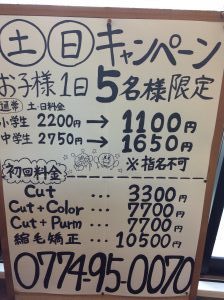 土日キャンペーン
お子様1日5名様限定
通常 土・日料金
小学生 2200円→1100円
中学生 2750円→1650円
※指名不可
初回料金
Cut … 3300円
Cut+Color… 7700円
Cut+Purm… 7700円
縮毛矯正 … 10500円
0774-95-0070